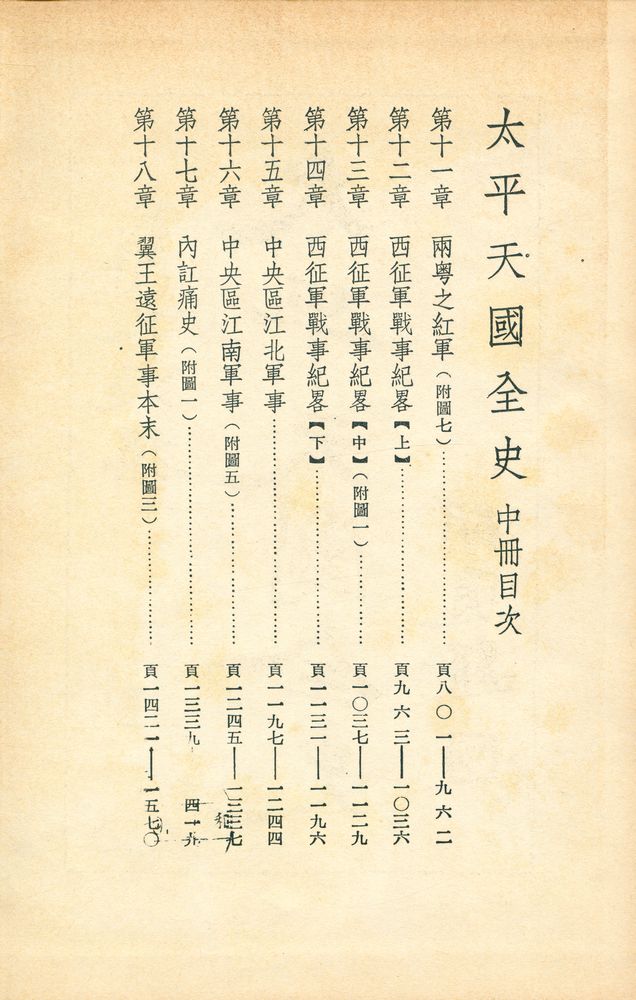 太平天國全史 中冊目次
第十一章 兩粵之紅軍（附圖七）……頁八〇一——九六二
第十二章 西征軍戰事紀畧【上】……頁九六三——一〇三六
第十三章 西征軍戰事紀畧【中】（附圖一）……頁一〇三七——一一二九
第十四章 西征軍戰事紀畧【下】……頁一一三一——一一九六
第十五章 中央區江北軍事……頁一一九七——一二四四
第十六章 中央區江南軍事（附圖五）……頁一二四五——一三三七
第十七章 內訌痛史（附圖一）……頁一三三九 四一九
第十八章 翼王遠征軍事本末（附圖三）……頁一四二一——一五七〇